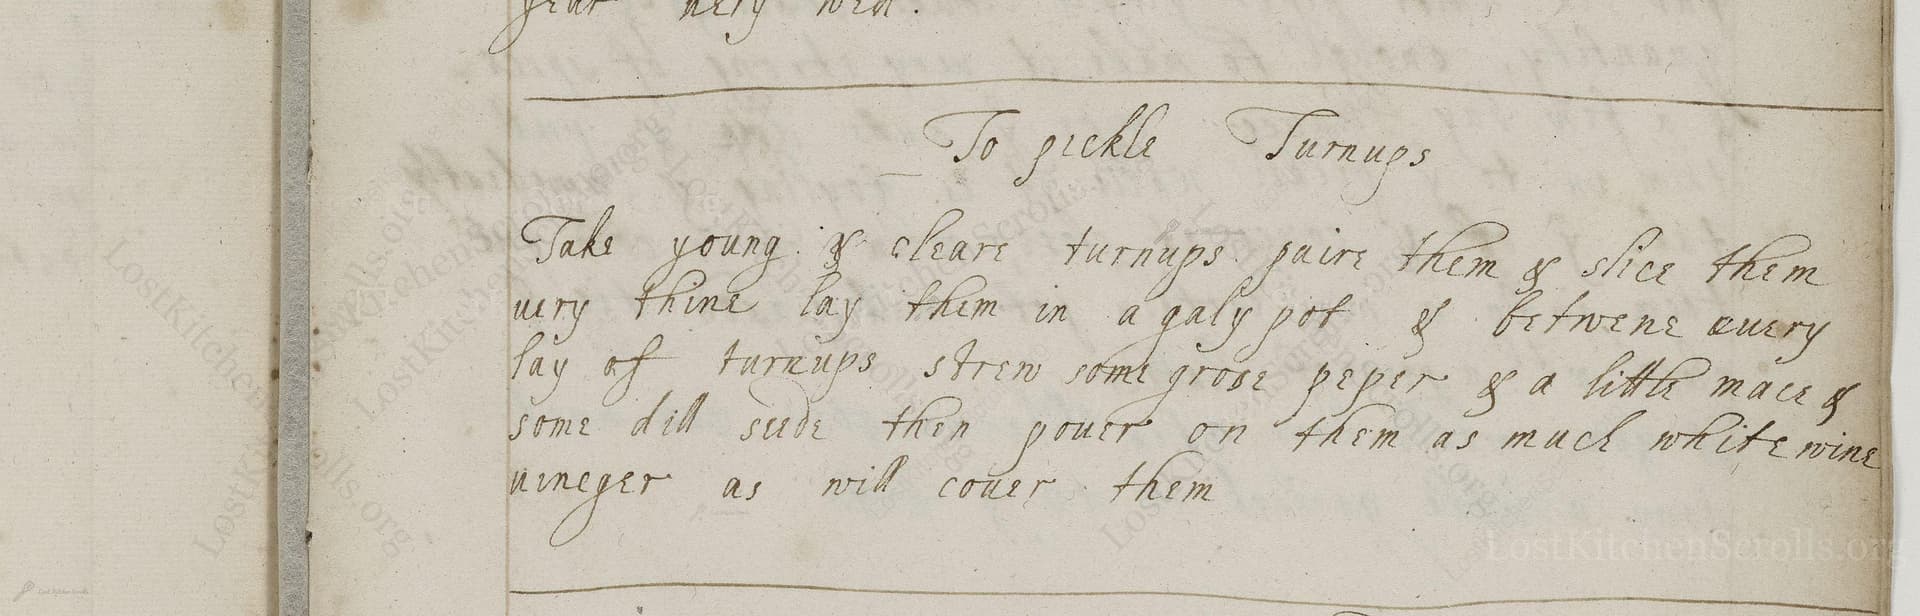 year very well.
To pickle Turnups
Take young & cleare turnups paire them & slice them
uery thine lay them in a galy pot & betwene euery
lay of turnups strew some grose peper & a little mace &
some dill seede then pouer on them as much white wine
uineger as will couer them
LostKitchenScrolls.org